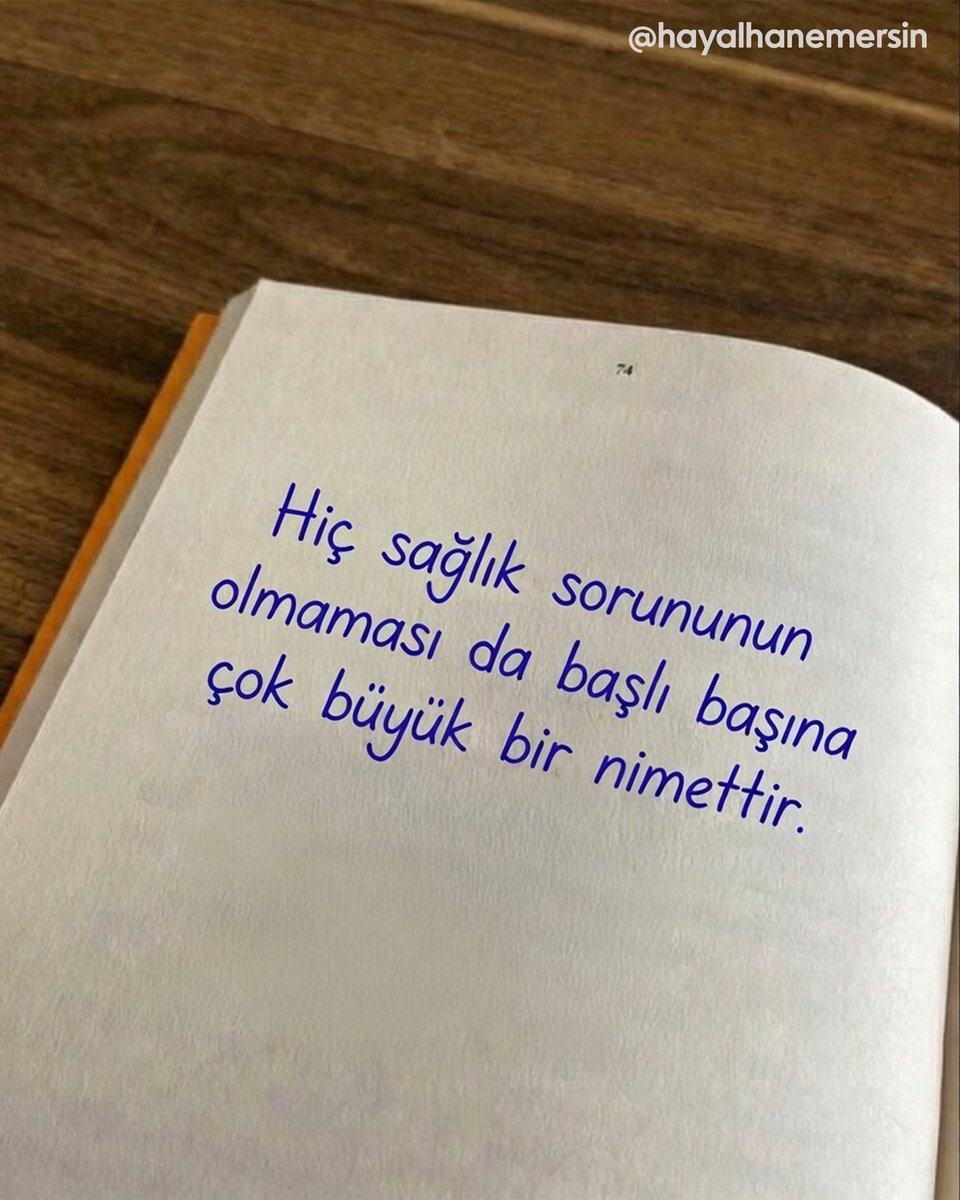 @hayalhanemersin
74
Hiç sağlık sorununun
olmaması da başlı başına
çok büyük bir nimettir.